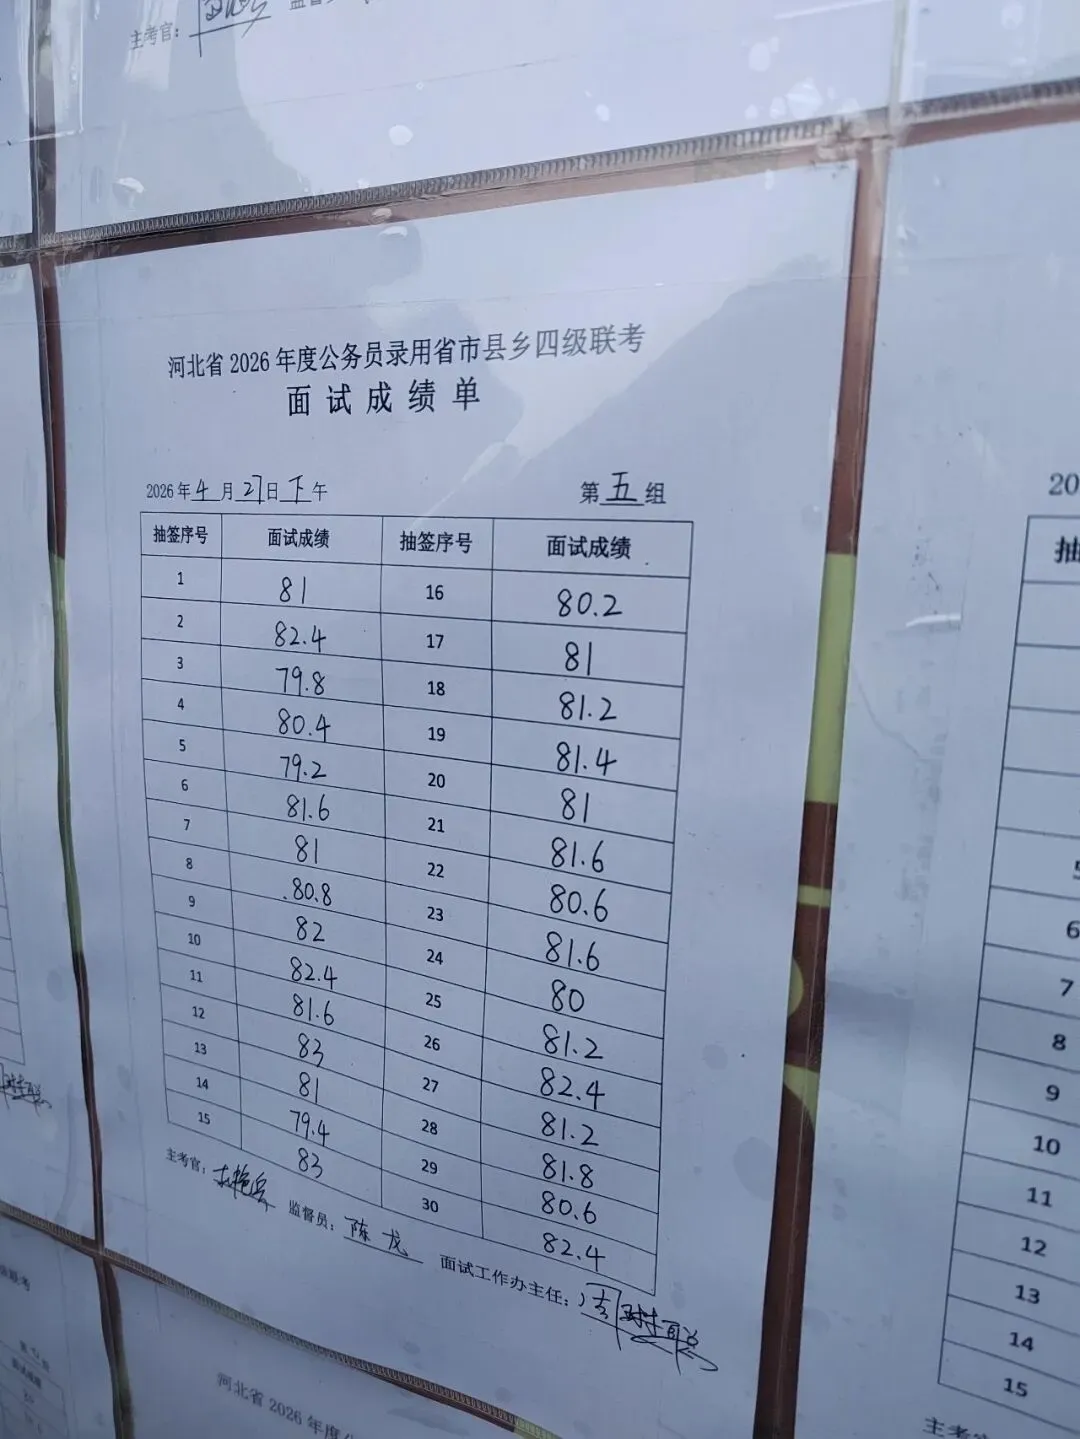 主考官：
河北省 2026 年度公务员录用省市县乡四级联考
面试成绩单
2026年4月27日下午 第五组
抽签序号 面试成绩 抽签序号 面试成绩
1 81 16 80.2
2 82.4 17 81
3 79.8 18 81.2
4 80.4 19 81.4
5 79.2 20 81
6 81.6 21 81.6
7 81 22 80.6
8 80.8 23 81.6
9 82 24 80
10 82.4 25 81.2
11 81.6 26 82.4
12 83 27 81.2
13 81 28 81.8
14 79.4 29 80.6
15 83 30 82.4
主考官： 监督员：陈龙 面试工作办主任：
20
抽
5
6
7
8
9
10
11
12
13
14
15
主考官
河北省 2026 年度公